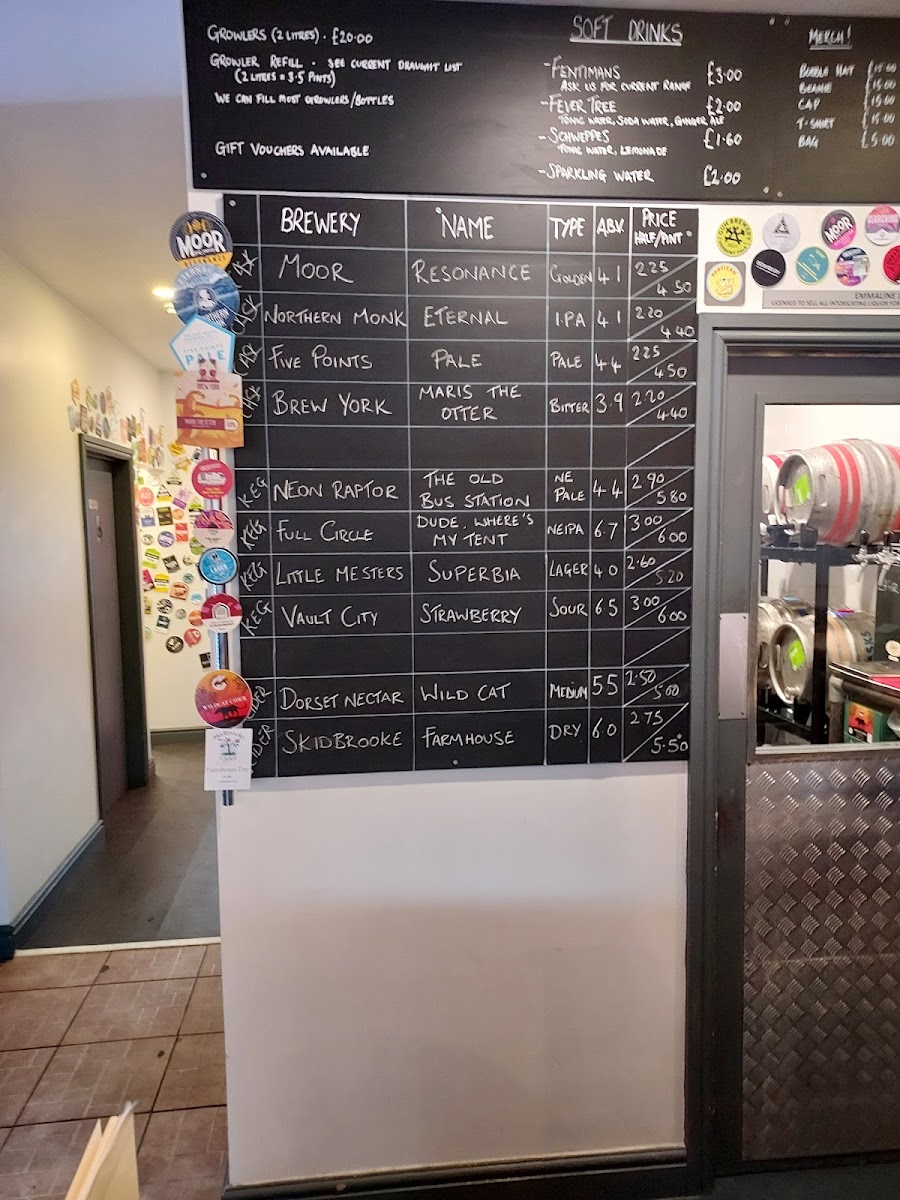 GROWLERS (2 LITRES) · £20·00
GROWLER REFILL · SEE CURRENT DRAUGHT LIST
(2 LITRES = 3·5 PINTS)
WE CAN FILL MOST GROWLERS/BOTTLES
GIFT VOUCHERS AVAILABLE
SOFT DRINKS
-FENTIMANS £3·00
ASK US FOR CURRENT RANGE
-FEVER TREE £2·00
TONIC WATER, SODA WATER, GINGER ALE
-SCHWEPPES £1·60
TONIC WATER, LEMONADE
-SPARKLING WATER £2·00
MERCH!
BOBBLE HAT £15·00
BEANIE £15·00
CAP £15·00
T-SHIRT £15·00
BAG £5·00
BREWERY NAME TYPE ABV PRICE HALF/PINT
CASK MOOR RESONANCE GOLDEN 4·1 2·25 / 4·50
CASK NORTHERN MONK ETERNAL I.P.A 4·1 2·20 / 4·40
CASK FIVE POINTS PALE PALE 4·4 2·25 / 4·50
CASK BREW YORK MARIS THE OTTER BITTER 3·9 2·20 / 4·40
KEG NEON RAPTOR THE OLD BUS STATION NE PALE 4·4 2·90 / 5·80
KEG FULL CIRCLE DUDE, WHERE'S MY TENT NEIPA 6·7 3·00 / 6·00
KEG LITTLE MESTERS SUPERBIA LAGER 4·0 2·60 / 5·20
KEG VAULT CITY STRAWBERRY SOUR 6·5 3·00 / 6·00
CIDER DORSET NECTAR WILD CAT MEDIUM 5·5 2·50 / 5·00
CIDER SKIDBROOKE FARMHOUSE DRY 6·0 2·75 / 5·50
MOOR
RESONANCE
ETERNAL
PALE
WILDCAT CIDER
MOOR
PARTISAN
EMMALINE
LICENSED TO SELL ALL INTOXICATING LIQUOR FOR